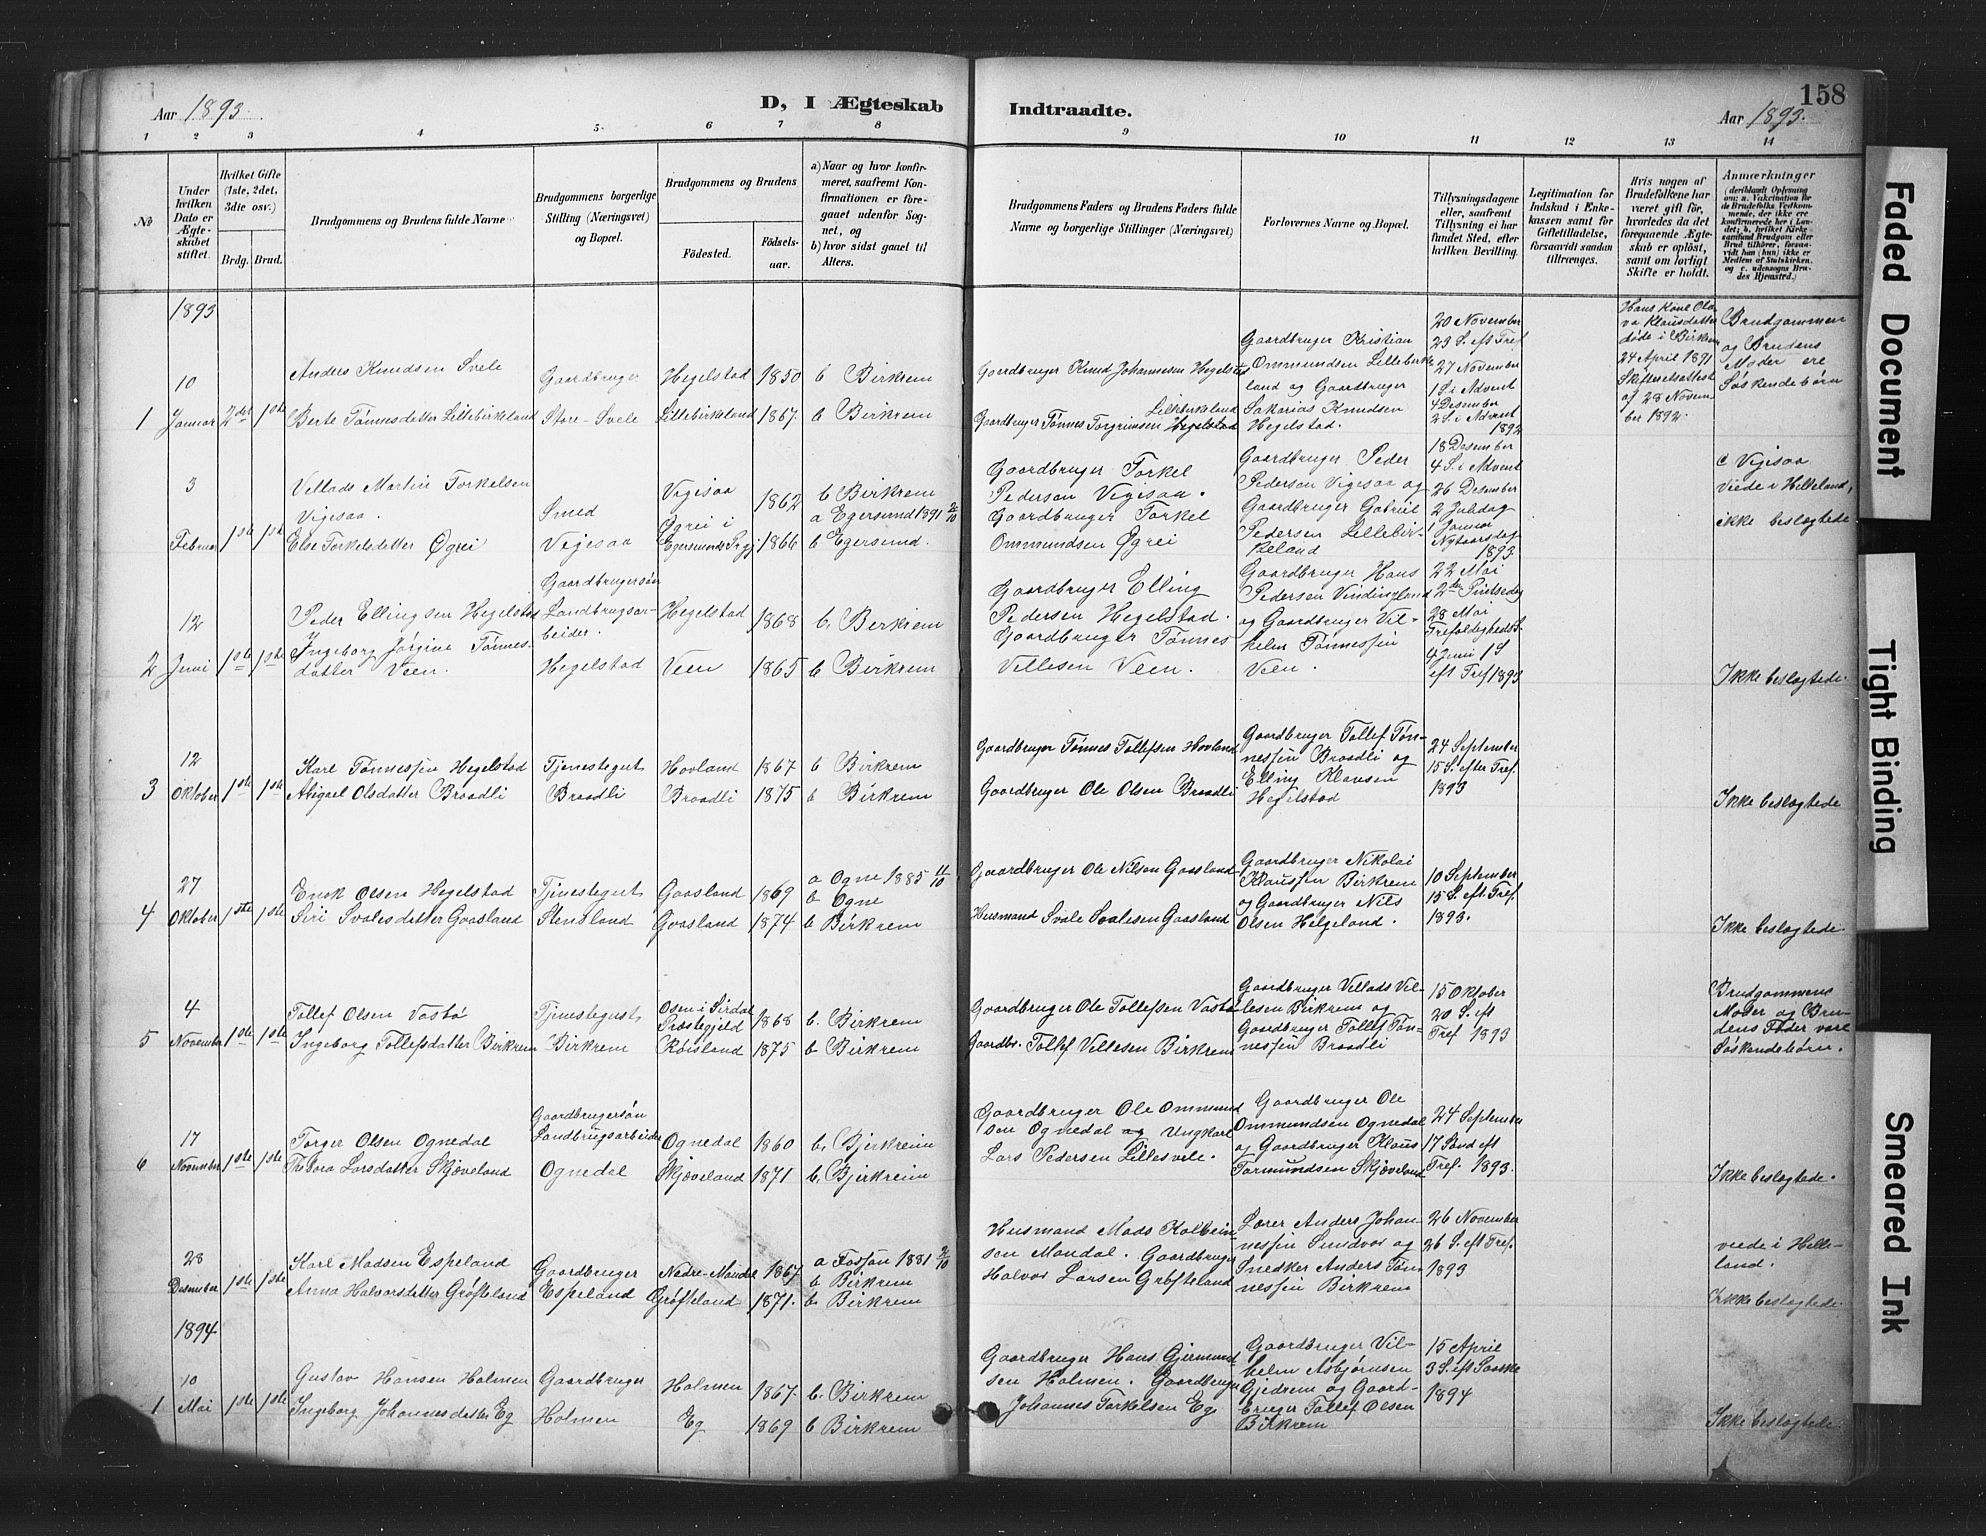 Aar 1893.
D, I Ægteskab
Indtraadte.
Aar 1893.
158
1 2 3 4 5 6 7 8 9 10 11 12 13 14
№
Under hvilken Dato er Ægteskabet stiftet.
Hvilket Gifte (1ste, 2det, 3die osv.)
Brdg. Brud.
Brudgommens og Brudens fulde Navne
Brudgommens borgerlige Stilling (Næringsvei) og Bopæl.
Brudgommens og Brudens
Fødested.
Fødselsaar.
a) Naar og hvor konfirmeret, saafremt Konfirmationen er foregaaet udenfor Sognet, og
b) hvor sidst gaaet til Alters.
Brudgommens Faders og Brudens Faders fulde Navne og borgerlige Stillinger (Næringsvei)
Forlovernes Navne og Bopæl.
Tillysningsdagene eller, saafremt Tillysning ei har fundet Sted, efter hvilken Bevilling.
Legitimation for Indskud i Enkekassen samt for Giftetilladelse, forsaavidt saadan tiltrænges.
Hvis nogen af Brudefolkene har været gift før, hvorledes da det foregaaende Ægteskab er opløst, samt om lovligt Skifte er holdt.
Anmærkninger
(deriblandt Oplysning om: a. Vaccination for de Brudefolks Vedkommende, der ikke ere konfirmerede her i Landet; b. hvilket Kirkesamfund Brudgom eller Brud tilhører, forsaavidt han (hun) ikke er Medlem af Statskirken, og c. udensogns Brudes Hjemsted.)
1893
1
10 Januar
2det 1ste
Anders Knudsen Svele
Berte Tønnesdatter Lillebirkeland
Gaardbruger
Store-Svele
Hegelstad 1850 b Birkrem
Lillebirkeland 1867 b Birkrem
Gaardbruger Knud Johannesen Hegelstad
Gaardbruger Tønnes Torgrimsen Lillebirkeland
Gaardbruger Kristian
Ommundsen Lillebirkeland og Gaardbruger
Sakarias Knudsen
Hegelstad.
20 November
23 S. eft Tref
27 November
1 S i Advent
4 Desember
2 S. i Advent
1892
Hans Kone Olava Klausdatter
døde i Birkrem
24 April 1891
Skifteselsattest
af 28 November 1892.
Brudgommen
og Brudens
Moder ere
Søskendebørn
3 Februar
1ste 1ste
Villads Martin Torkelsen
Vigesaa.
Else Torkelsdatter Øgrei
Smed
Vigesaa
Vigesaa 1862 b Birkrem
Øgrei i
Egersunds Prgj 1866
a Egersund 1891 2/10
b Egersund.
Gaardbruger Torkel
Pedersen Vigesaa.
Gaardbruger Torkel
Ommundsen Øgrei
Gaardbruger Peder
Pedersen Vigesaa og
Gaardbruger Gabriel
Pedersen Lillebirkeland
18 Desember
4 S. i Advent
26 Desember
2 Juledag
1 Januar
Nytaarsdag
1893
c Vigesaa
viede i Helleland,
ikke beslegtede
2
12 Juni
1ste 1ste
Peder Ellingsen Hegelstad
Ingeborg Jørgine Tønnesdatter Veen.
Gaardbrugersøn
Landbrugsarbeider.
Hegelstad
Hegelstad 1868 b. Birkrem
Veen 1865 b Birkrem
Gaardbruger Elling
Pedersen Hegelstad.
Gaardbruger Tønnes
Villesen Veen.
Gaardbruger Hans
Pedersen Vindingland
og Gaardbruger Vilhelm Tønnessen
Veen.
22 Mai
2den Pintsedag
28 Mai
Trefoldigheds S.
4 Juni 1 S
eft Tref 1893
Ikke beslegtede.
3
12 Oktober
1ste 1ste
Karl Tønnessen Hegelstad
Abigael Olsdatter Braadli
Tjenestegut
Braadli
Hovland 1867 b Birkrem
Braadli 1875 b Birkrem
Gaardbruger Tønnes Tollefsen Hovland
Gaardbruger Ole Olsen Braadli
Gaardbruger Tollef Tønnessen Braadli og
Elling Klausen
Hegelstad
24 September
15 S. efter Tref.
1893
Ikke beslægtede
4
27 Oktober
1ste 1ste
Enok Olsen Hegelstad
Siri Svalesdatter Gaasland
Tjenestegut
Stensland
Gaasland 1869 a Ogne 1885 11/10
b Ogne
Gaasland 1874 b Birkrem
Gaardbruger Ole Nilsen Gaasland
Husmand Svale Svalesen Gaasland
Gaardbruger Nikolai
Klaussen Birkrem
og Gaardbruger Nils
Olsen Helgeland.
10 September
15 S. eft Tref.
1893.
Ikke beslegtede.
5
4 November
1ste 1ste
Tollef Olsen Vasbø
Ingeborg Tollefsdatter Birkrem
Tjenestegut
Birkrem
Osen i Sirdal
Præstegjeld 1868 b. Birkrem
Røisland 1875 b Birkrem
Gaardbruger Ole Tollefsen Vasbø
Gaardbr. Tollef Villesen Birkrem
Gaardbruger Villads Villesen Birkrem og
Gaardbruger Tollef Tønnessen Braadli
15 Oktober
20 S. eft
Tref 1893
Brudgommens
Moder og Brudens Fader vare
Søskendebørn.
6
17 November
1ste 1ste
Torger Olsen Ognedal
Thora Larsdatter Skjæveland
Gaardbrugersøn
Landbrugsarbeider
Ognedal
Ognedal 1860 b. Bjerkreim
Skjæveland 1871 b. Bjerkreim
Gaardbruger Ole Ommundsen Ognedal og Ungkarl
Lars Pedersen Lillesvele.
Gaardbruger Ole
Ommundsen Ognedal
og Gaardbruger Klaus
Tormundsen Skjæveland
24 September
17 Sønd eft
Tref. 1893.
Ikke beslegtede.
28 Desember
1ste 1ste
Karl Madsen Espeland
Anna Halvorsdatter Grøfteland
Gaardbruger
Espeland
Nedre-Mandal 1867 a Fossan 1881 2/10
b Birkrem
Grøfteland 1871. b Birkrem
Husmand Mads Kolbeinsen Mandal. Gaardbruger
Halvor Larsen Grøfteland
Lærer Anders Johannessen Sundvor og
Snedker Anders Tønnessen Birkrem
26 November
26 S. eft Tref.
1893
viede i Helleland.
Ikke beslegtede.
1894
1
10 Mai
1ste 1ste
Gustav Hansen Holmen
Ingeborg Johannesdatter Eg
Gaardbruger
Holmen
Holmen 1867. b. Birkrem
Eg 1869 b Birkrem
Gaardbruger Hans Gjermundsen Holmen. Gaardbruger
Johannes Torkelsen Eg.
Gaardbruger Vilhelm Asbjørnsen
Gjedrem og Gaardbruger Tollef Olsen
Birkrem
15 April
3 S. eft Paaske
1894
Ikke beslegtede.
Faded Document
Tight Binding
Smeared Ink